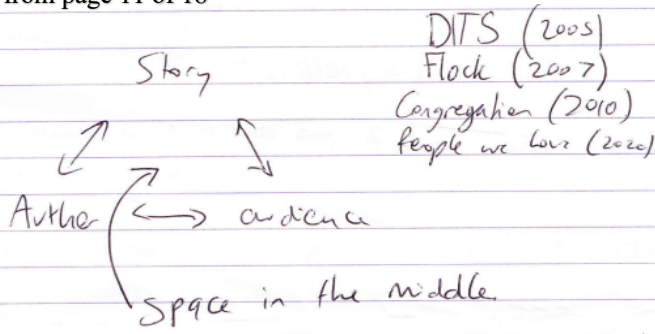 from page 11 of 16
DITS (2005)
Flock (2007)
Congregation (2010)
People we love (2020)
Story
Author
audience
Space in the middle